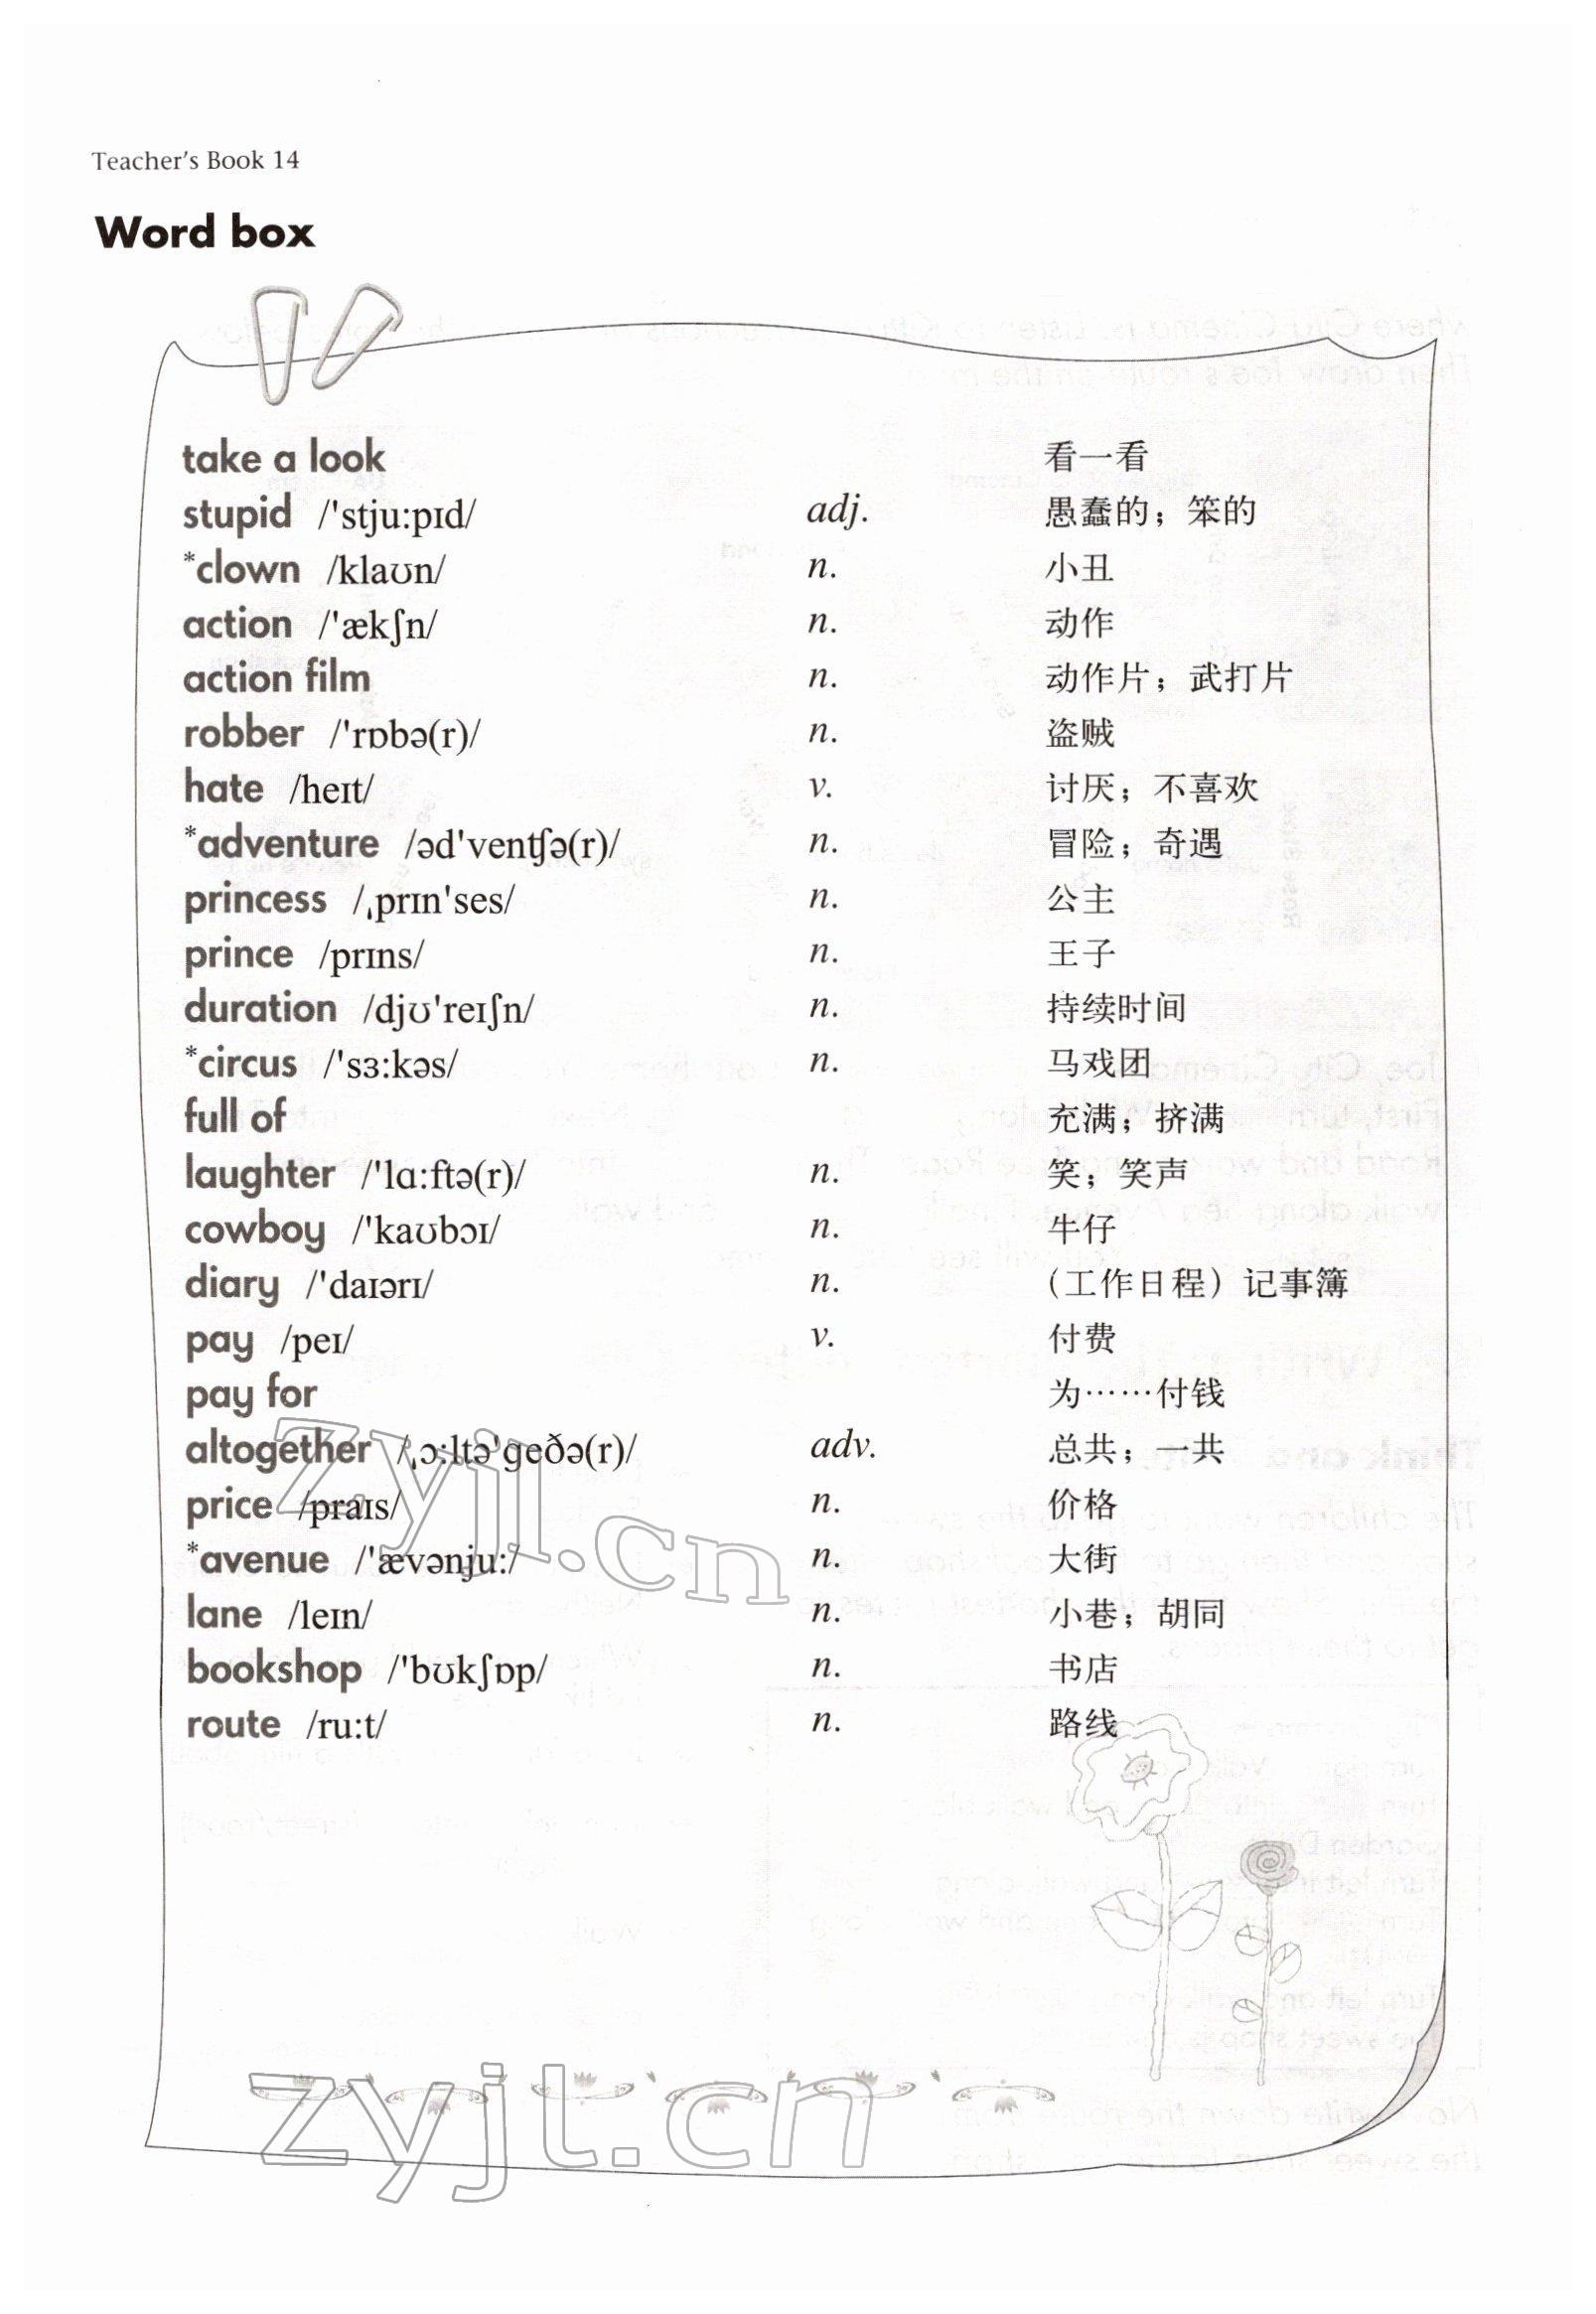 Teacher's Book 14
Word box
take a look 看一看
stupid /'stju:pɪd/ adj. 愚蠢的；笨的
*clown /klaʊn/ n. 小丑
action /'ækʃn/ n. 动作
action film n. 动作片；武打片
robber /'rɒbə(r)/ n. 盗贼
hate /heɪt/ v. 讨厌；不喜欢
*adventure /əd'ventʃə(r)/ n. 冒险；奇遇
princess /ˌprɪn'ses/ n. 公主
prince /prɪns/ n. 王子
duration /djʊ'reɪʃn/ n. 持续时间
*circus /'sɜ:kəs/ n. 马戏团
full of 充满；挤满
laughter /'lɑ:ftə(r)/ n. 笑；笑声
cowboy /'kaʊbɔɪ/ n. 牛仔
diary /'daɪərɪ/ n. （工作日程）记事簿
pay /peɪ/ v. 付费
pay for 为……付钱
altogether /ˌɔ:ltə'geðə(r)/ adv. 总共；一共
price /praɪs/ n. 价格
*avenue /'ævənju:/ n. 大街
lane /leɪn/ n. 小巷；胡同
bookshop /'bʊkʃɒp/ n. 书店
route /ru:t/ n. 路线
zyjl.cn
zyjl.cn